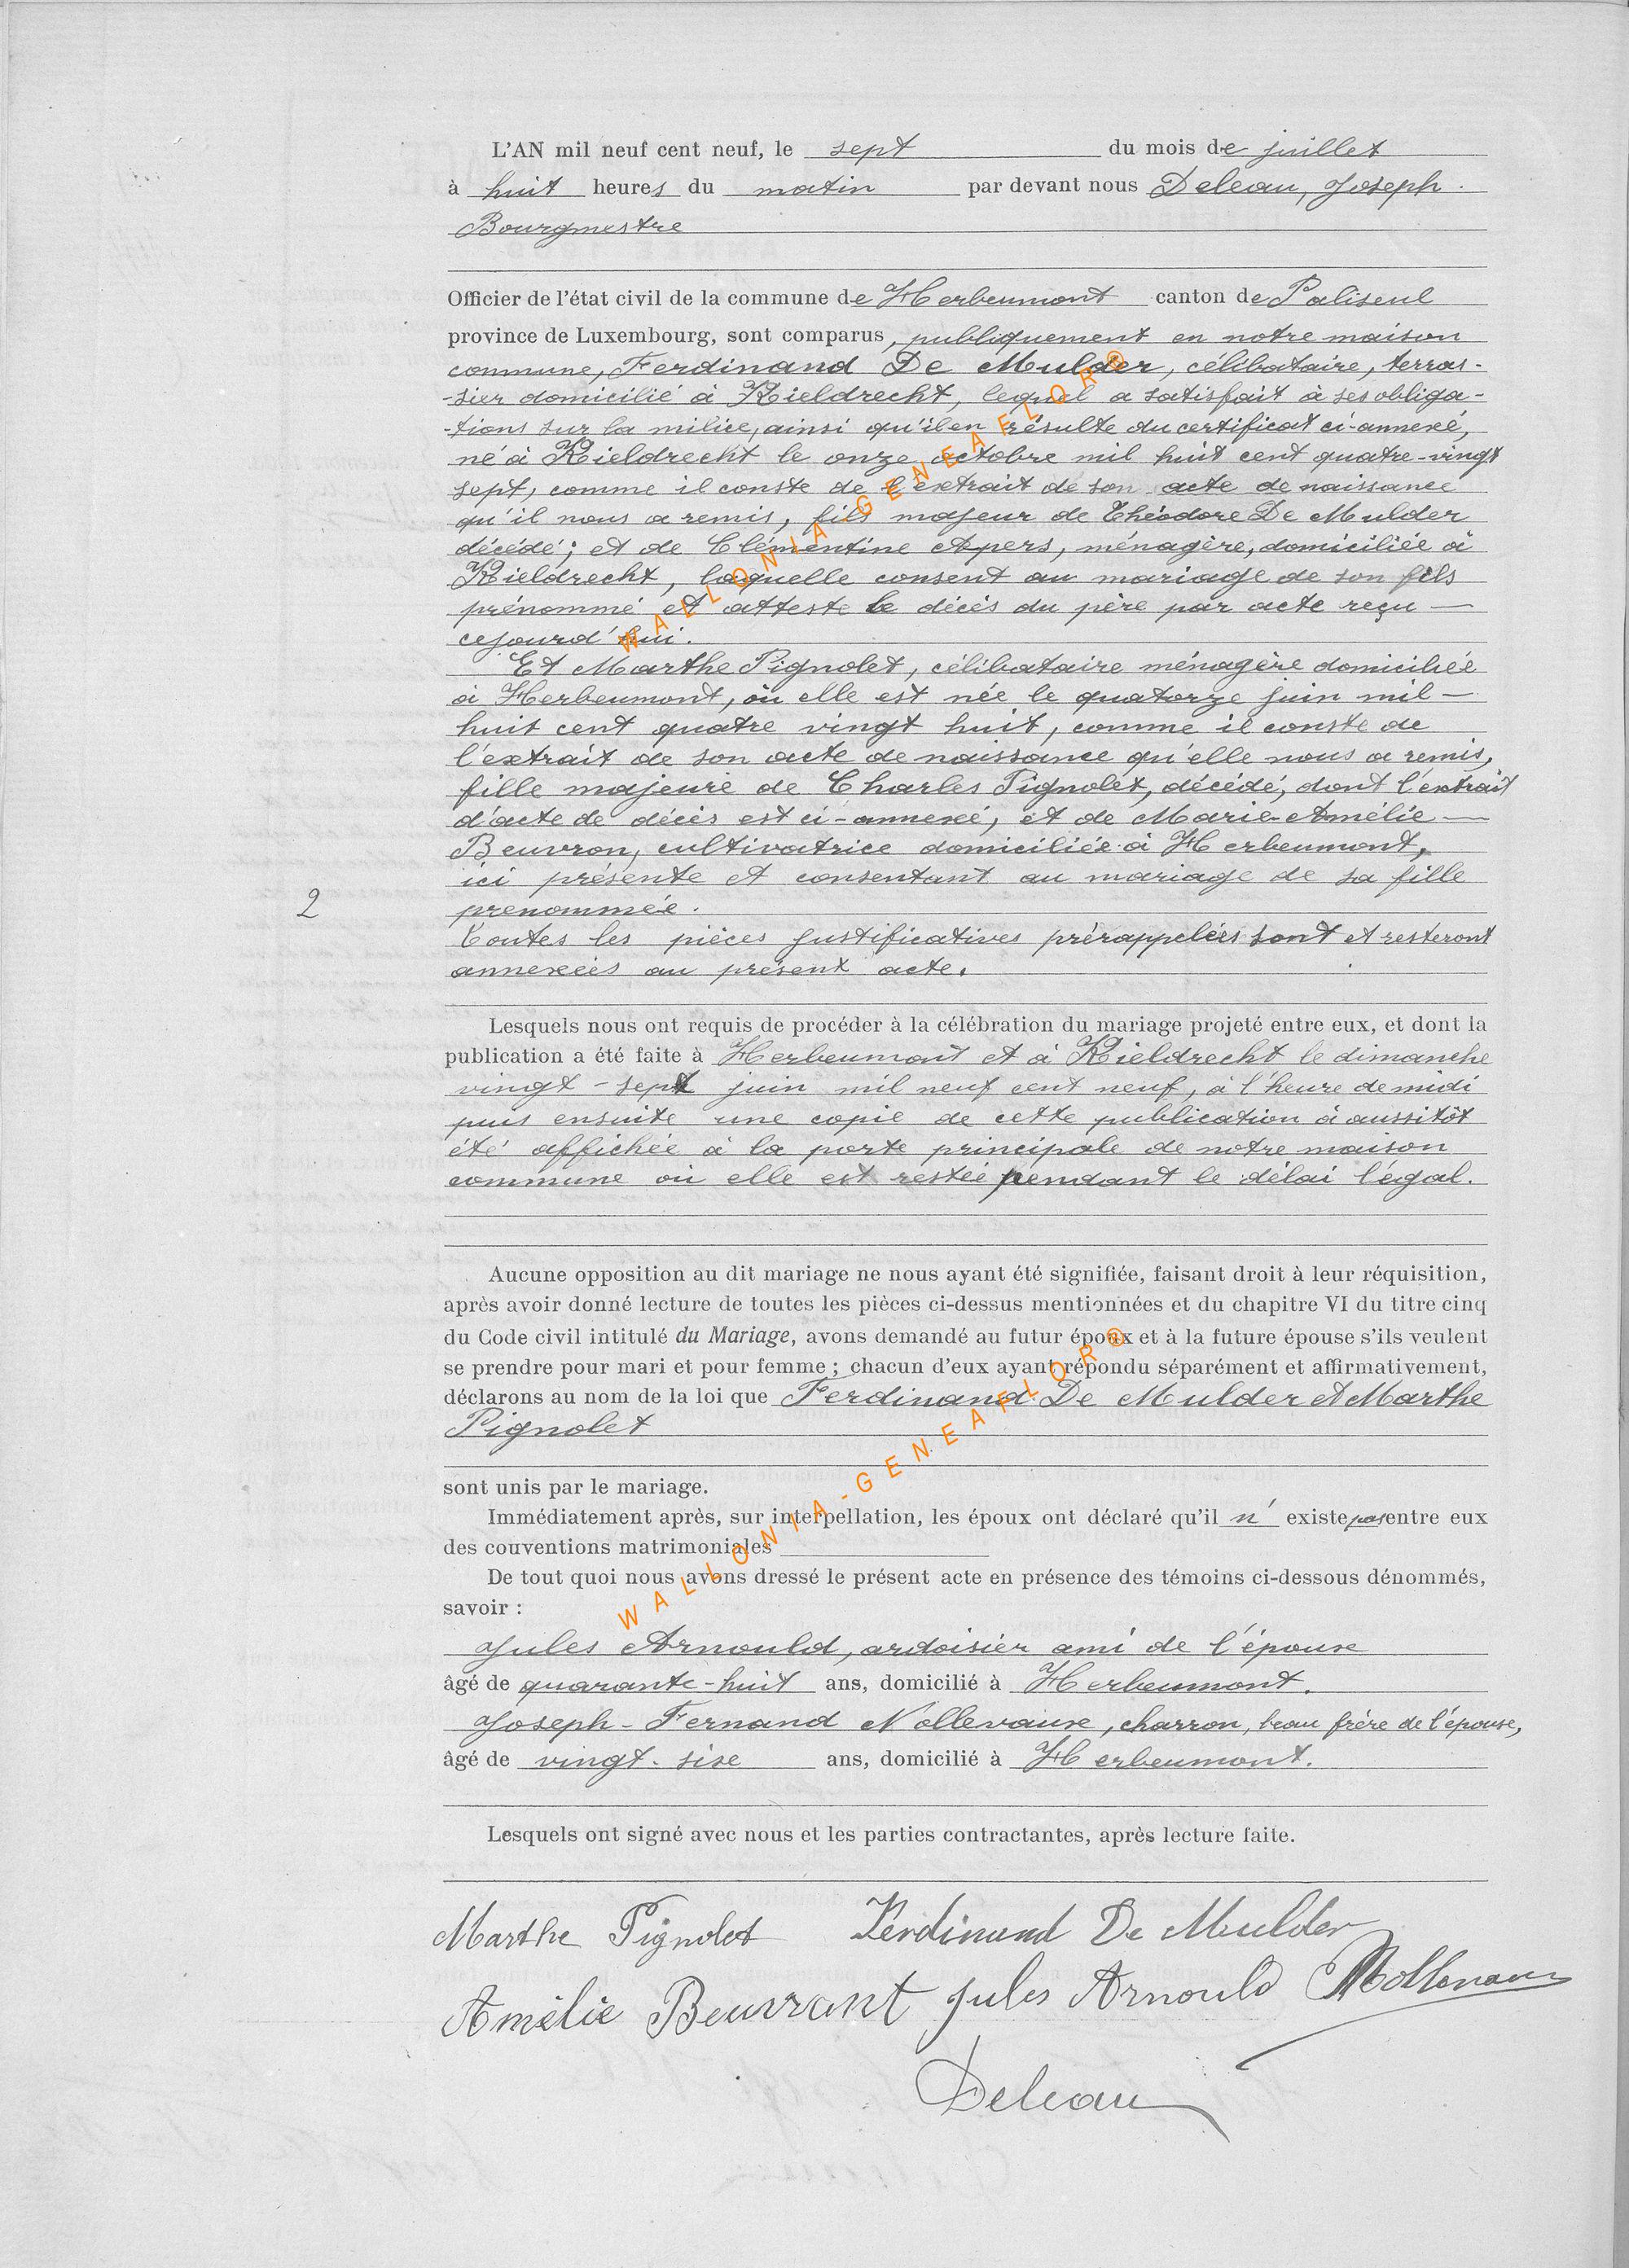 L'AN mil neuf cent neuf, le sept du mois de juillet
à huit heures du matin par devant nous Deleau, Joseph.
Bourgmestre
Officier de l'état civil de la commune de Herbeumont canton de Paliseul
province de Luxembourg, sont comparus, publiquement en notre maison
commune, Ferdinand De Mulder, célibataire, terras-
-sier domicilié à Kieldrecht, lequel a satisfait à ses obliga-
-tions sur la milice, ainsi qu'il en résulte du certificat ci-annexé,
né à Kieldrecht le onze octobre mil huit cent quatre-vingt
sept, comme il conste de l'extrait de son acte de naissance
qu'il nous a remis, fils majeur de Théodore De Mulder
décédé; et de Clémentine Apers, ménagère, domiciliée à
Kieldrecht, laquelle consent au mariage de son fils
prénommé et atteste le décès du père par acte reçu —
cejourd'hui.
Et Marthe Pignolet, célibataire ménagère domiciliée
à Herbeumont, où elle est née le quatorze juin mil —
huit cent quatre vingt huit, comme il conste de
l'extrait de son acte de naissance qu'elle nous a remis,
fille majeure de Charles Pignolet, décédé, dont l'extrait
d'acte de décès est ci-annexé, et de Marie-Amélie —
Beuvron, cultivatrice domiciliée à Herbeumont,
ici présente et consentant au mariage de sa fille
2
prenommée.
Toutes les pièces justificatives prérappelées sont et resteront
annexées au présent acte.
Lesquels nous ont requis de procéder à la célébration du mariage projeté entre eux, et dont la
publication a été faite à Herbeumont et à Kieldrecht le dimanche
vingt-sept juin mil neuf cent neuf, à l'heure de midi
puis ensuite une copie de cette publication à aussitôt
été affichée à la porte principale de notre maison
commune où elle est restée pendant le délai légal.
Aucune opposition au dit mariage ne nous ayant été signifiée, faisant droit à leur réquisition,
après avoir donné lecture de toutes les pièces ci-dessus mentionnées et du chapitre VI du titre cinq
du Code civil intitulé du Mariage, avons demandé au futur époux et à la future épouse s'ils veulent
se prendre pour mari et pour femme ; chacun d'eux ayant répondu séparément et affirmativement,
déclarons au nom de la loi que Ferdinand De Mulder et Marthe
Pignolet
sont unis par le mariage.
Immédiatement après, sur interpellation, les époux ont déclaré qu'il n' existe pas entre eux
des couventions matrimoniales
De tout quoi nous avons dressé le présent acte en présence des témoins ci-dessous dénommés,
savoir :
Jules Arnould, ardoisier ami de l'épouse
âgé de quarante-huit ans, domicilié à Herbeumont.
Joseph-Fernand Nollevaux, charron, beau frère de l'épouse,
âgé de vingt-six ans, domicilié à Herbeumont.
Lesquels ont signé avec nous et les parties contractantes, après lecture faite.
Marthe Pignolet Ferdinand De Mulder
Amélie Beuvrant Jules Arnould Nollevaux
Deleau
WALLONIA-GENEAFLOR®
WALLONIA-GENEAFLOR®